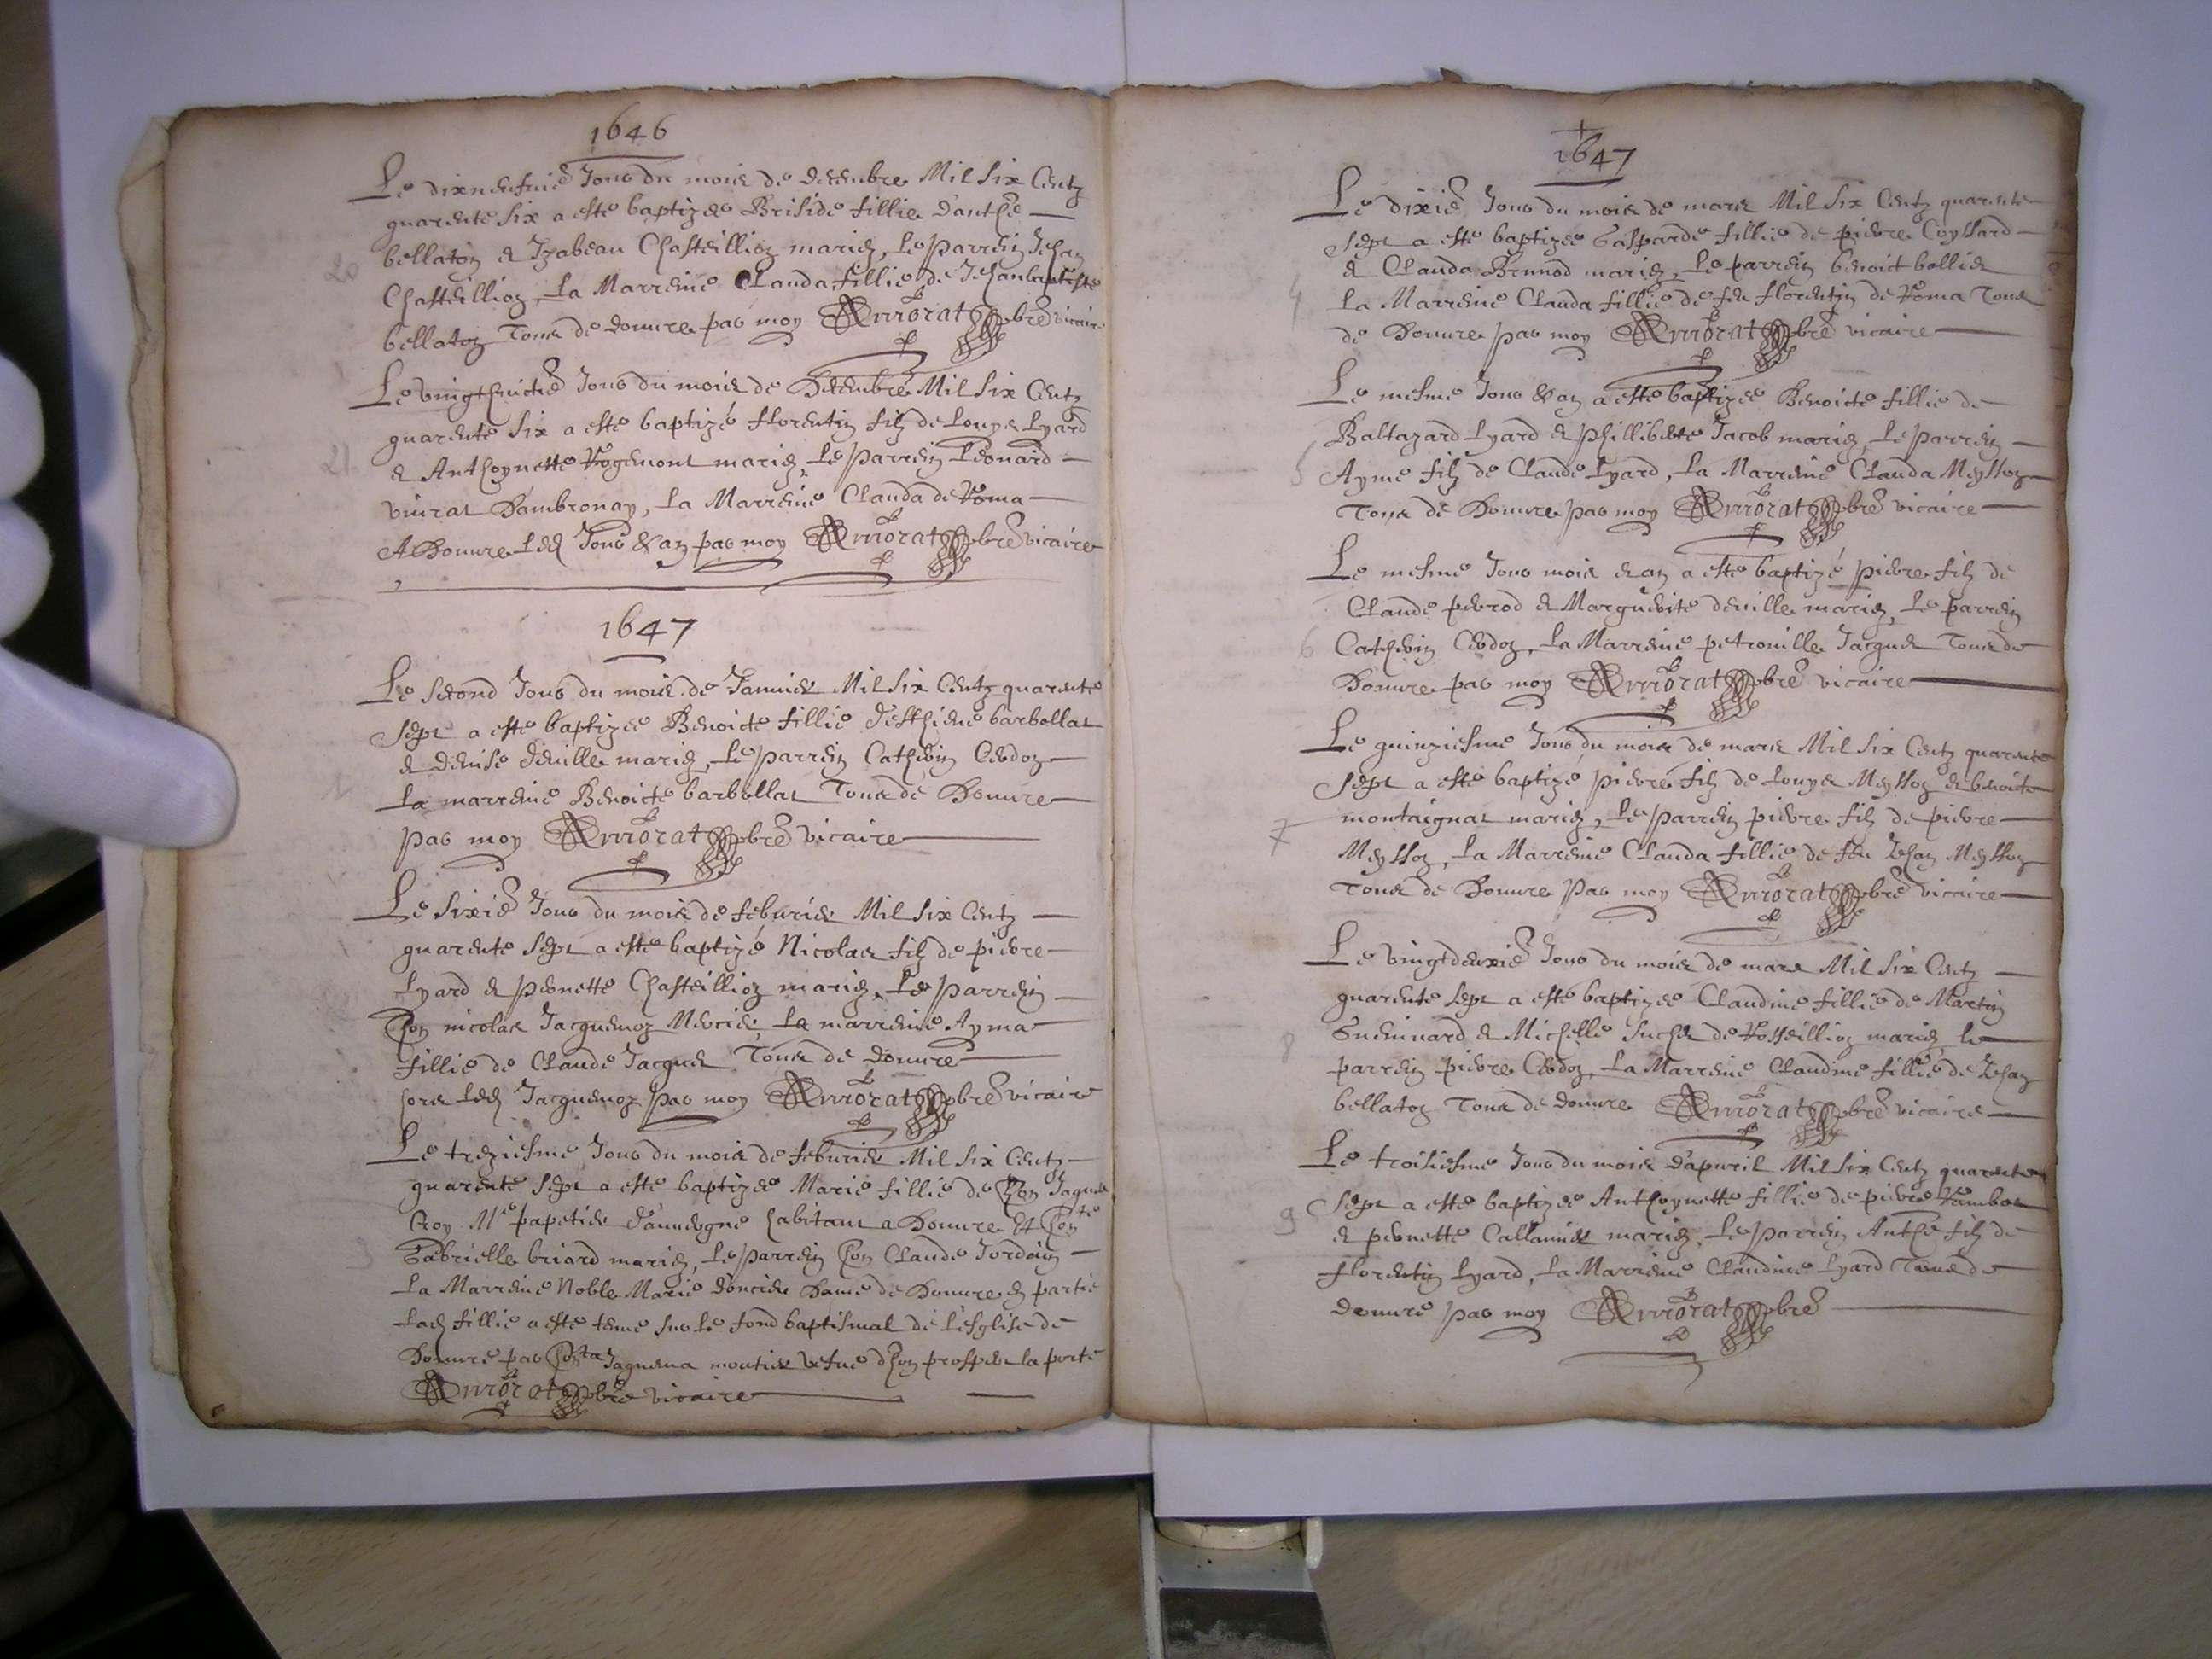 1646
Le dixneufvie Jour du mois de decembre Mil Six Centz
quarente Six a este baptizee Briside fillie d'anthe
bellaton et Izabeau Chasteillion mariez, Le parrein Jehan
20
Chasteillion, La Marreine Clauda fillie de Jehanbaptiste
bellaton Tous de douure par moy Amorat pbre vicaire
Le vingthuictie Jour du mois de Decembre Mil Six Centz
quarente Six a este baptizé florentin filz de Louys Lyard
21
et Anthoynette Rogemont mariez, Le parrein Léonard
vinrat Dambronay, La Marreine Clauda de Roma
A Douure Led Jour et an par moy Amorat pbre vicaire
1647
Le Second Jour du mois de Januier Mil Six Centz quarente
Sept a este baptizee Benoicte fillie d'esthiene barbollat
et denise deuille mariez, Le parrein Catherin Cerdon
1
La marreine Benoicte barbollat Tous de Douure
par moy Amorat pbre vicaire
Le Sixie Jour du mois de feburier Mil Six Centz
quarente Sept a este baptizé Nicolas filz de pierre
Lyard et pernette Chasteillion mariez, Le parrein
hon nicolas Jacquemoz Mercier, La marreine Ayma
fillie de Claude Jacquet Tous de douure
hors Led Jacquemoz par moy Amorat pbre vicaire
Le treziesme Jour du mois de feburier Mil Six Centz
quarente Sept a este baptizee Marie fillie de hon Jaques
Croy Me papetier d'auuergne habitant a Douure Et honte
3
Gabrielle briard mariez, Le parrein hon Claude Jordain
La Marreine Noble Marie doncieu Dame de Douure en partie
Lad fillie a este tenue sur Le fond baptismal de L'esglise de
Douure par honta Jaquema moutier vefue d'hon prosper la porte
Amorat pbre vicaire
1647
Le dixie Jour du mois de mars Mil Six Centz quarente
Sept a este baptizee Gasparde fillie de pierre Coyssard
et Clauda Brunod mariez, Le parrein benoict bollier
4
La Marreine Clauda fillie de feu florentin de Roma Tous
de Douure par moy Amorat pbre vicaire
Le mesme Jour et an a este baptizee Benoicte fillie de
Baltazard Lyard et philliberte Jacob mariez, Le parrein
5
Ayme filz de Claude Lyard, La Marreine Clauda Meysson
Tous de Douure par moy Amorat pbre vicaire
Le mesme Jour mois et an a este baptizé pierre filz de
Claude perrod et Marguerite deuille mariez, Le parrein
6
Catherin Cerdon, La Marreine petronille Jacquet Tous de
Douure par moy Amorat pbre vicaire
Le quinziesme Jour du mois de mars Mil Six Centz quarente
Sept a este baptizé pierre filz de Louys Meysson et benoite
7
montaignat mariez, Le parrein pierre filz de pierre
Meysson, La Marreine Clauda fillie de feu Jehan Meysson
Tous de Douure Par moy Amorat pbre vicaire
Le vingtdeuxie Jour du mois de mars Mil Six Centz
quarente Sept a este baptizee Claudine fillie de Martin
8
et Michelle Suchet de Rosseillion mariez, Le
parrein pierre Cerdon, La Marreine Claudine fillie de Jehan
bellaton Tous de douure Amorat pbre vicaire
Le troisiesme Jour du mois d'apuril Mil Six Centz quarente
9
Sept a este baptizee Anthoynette fillie de pierre Rambos
et pernette Callamier mariez, Le parrein Anthe filz de
florentin Lyard, La Marreine Claudine Lyard Tous de
douure par moy Amorat pbre